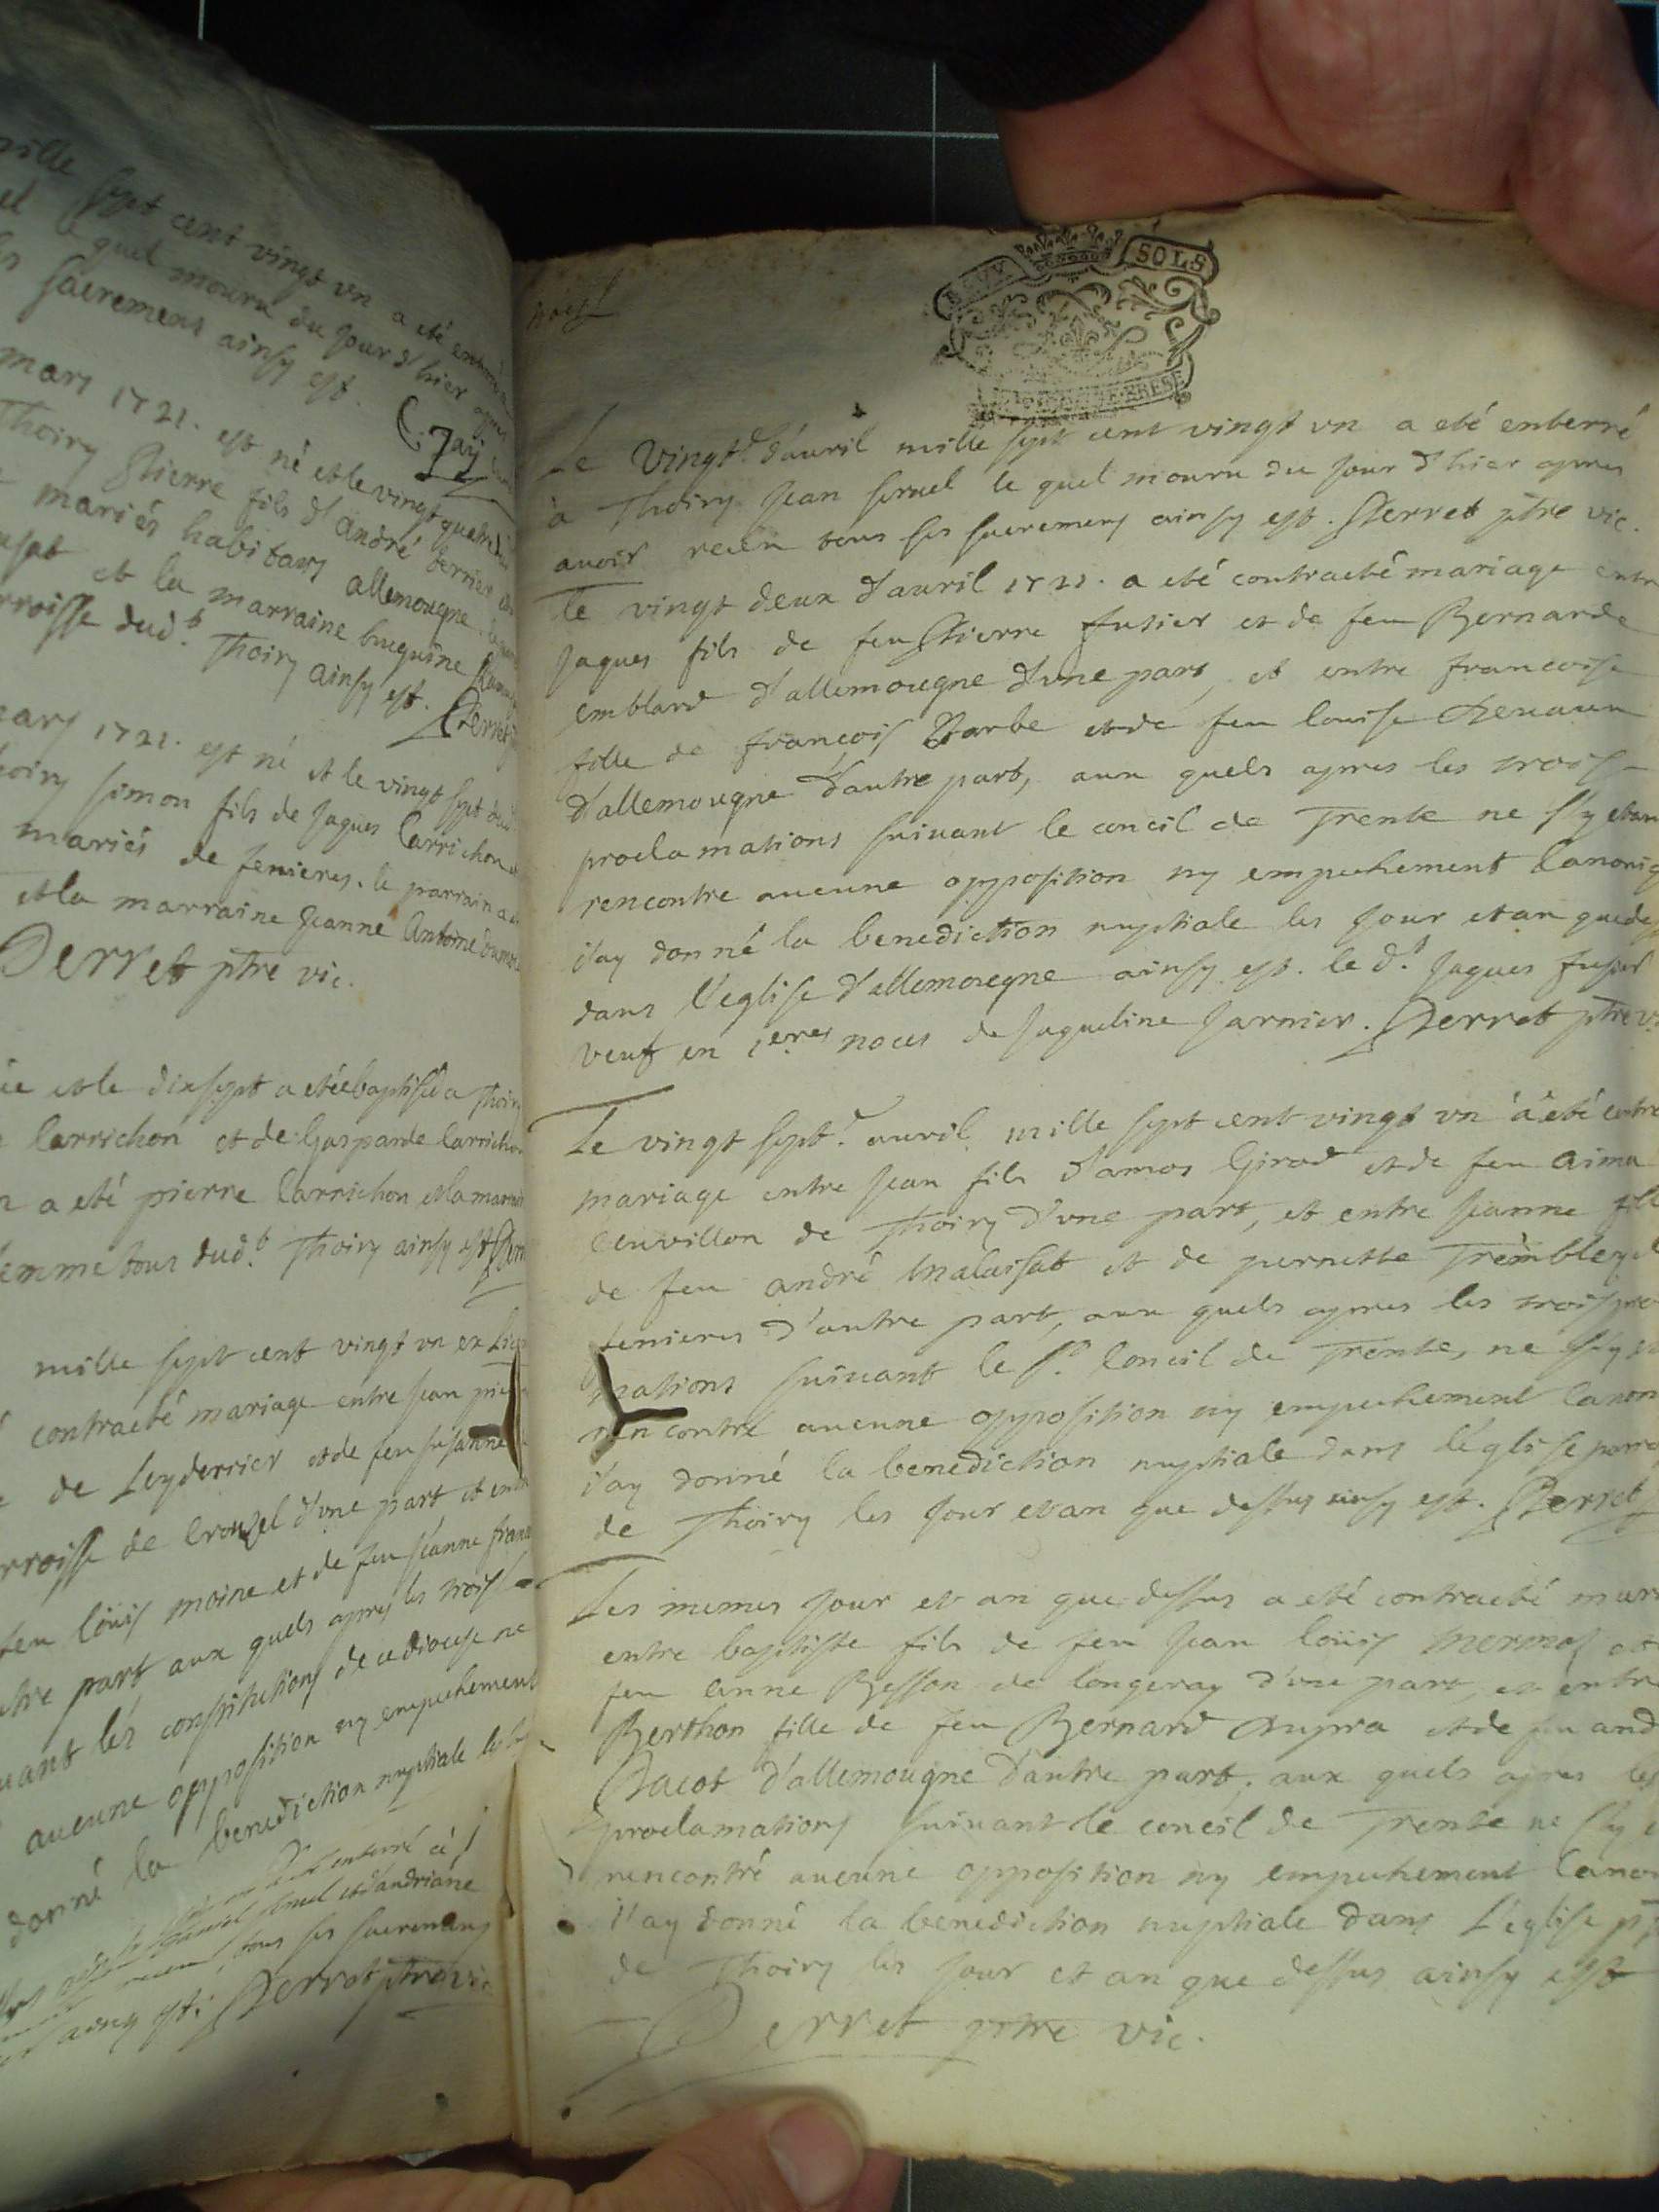 mille sept cent vingt vn a eté enterré
le quel mouru du jour d'hier apres
sacremens ainsy est.
mars 1721. est né et le vingt quatre
Thoiry Pierre fils d'andré
mariés habitans allemougne
et la marraine
parroisse dud.t Thoiry ainsy est. Perret
mars 1721. est né et le vingt sept dud
Thoiry simon fils de jaques Carrichon
mariés de fenieres. le parrain a
et la marraine jeanne Antoine
Perret ptre vic.
et le dixsept a etée baptisée a Thoiry
Carrichon et de Gasparde Carrichon
a eté pierre Carrichon et la marraine
femme tous dud.t Thoiry ainsy est Perret
mille sept cent vingt vn
contracté mariage entre jean pierre
de Leyderrier et de feu susanne
parroisse de Crouzel d'une part et entre
feu loüis moine et de feu jeanne
autre part aux quels apres les trois
suivant les constitutions de ce diocese ne
aucune opposition ny empechement
donné la benediction nuptiale
enterré à
et d'andriane
receu tous ses sacremens
ainsy est. Perret ptre vic
SOLS
Le Vingt.e d'auril mille sept cent vingt vn a eté enterré
à Thoiry jean le quel mouru du jour d'hier apres
auoir receu tous ses sacremens ainsy est. Perret ptre vic.
Le vingt deux d'auril 1721. a eté contracté mariage entre
jaques fils de feu Pierre fusier et de feu Bernarde
emblard d'allemougne d'une part, et entre francoise
fille de francois Barbe et de feu louise
d'allemougne d'autre part, aux quels apres les trois
proclamations suiuant le concil de Trente ne s'y etant
rencontré aucune opposition ny empechement Canoniq
j'ay donné la benediction nuptiale les jour et an que des
dans l'eglise d'allemougne ainsy est. le d.t jaques fusier
veuf en 1eres noces de jaqueline jarnier. Perret ptre v.
Le vingt sept.e auril mille sept cent vingt vn a eté contr
mariage entre jean fils d'amos Girod et de feu aima
de Thoiry d'vne part, et entre jeanne fille
de feu andré Malaisat et de pernette Trembley d
fenieres d'autre part, aux quels apres les trois pro
mations suiuant le s.t Concil de Trente, ne s'y
rencontré aucune opposition ny empechement Canon
j'ay donné la benediction nuptiale dans l'église parro
de Thoiry les jour et an que dessus ainsy est. Perret
Les memes jour et an que dessus a eté contracté mari
entre baptiste fils de feu jean loüis Mermos et
feu anne Besson de longeray d'vne part, et entre
Berthon fille de feu Bernard dupra et de feu and
Pacot d'allemougne d'autre part, aux quels apres les
proclamations suiuant le concil de Trente ne s'y e
rencontré aucune opposition ny empechement Canon
j'ay donné la benediction nuptiale dans L'eglise
de Thoiry les jour et an que dessus ainsy est
Perret ptre vic.